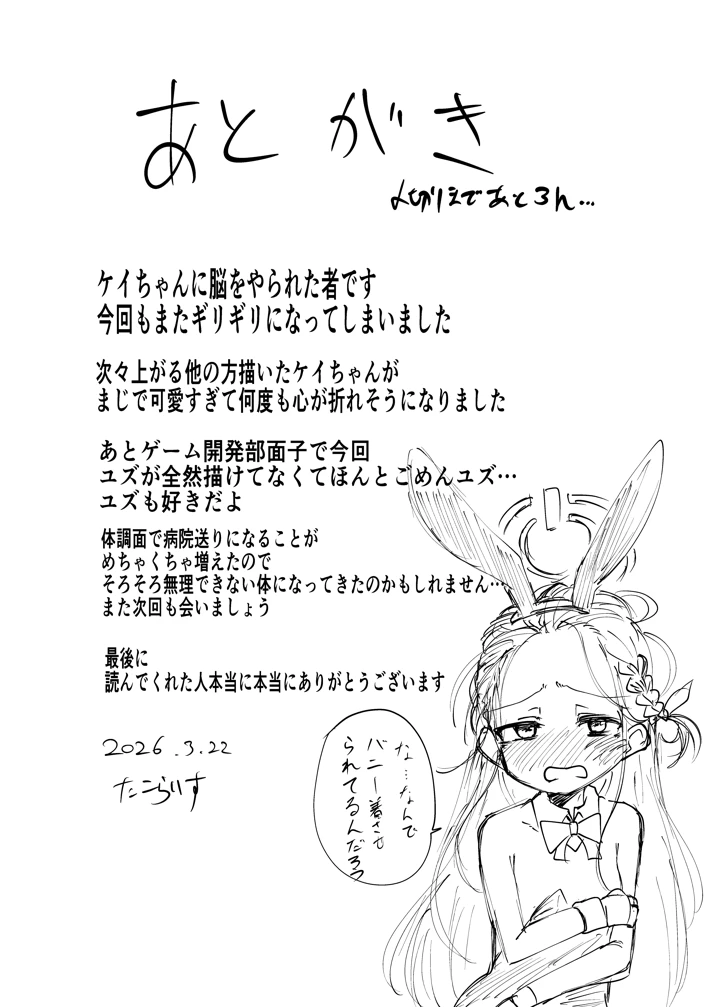 あとがき
〆切りえであとろん…
ケイちゃんに脳をやられた者です
今回もまたギリギリになってしまいました
次々上がる他の方描いたケイちゃんが
まじで可愛すぎて何度も心が折れそうになりました
あとゲーム開発部面子で今回
ユズが全然描けてなくてほんとごめんユズ…
ユズも好きだよ
体調面で病院送りになることが
めちゃくちゃ増えたので
そろそろ無理できない体になってきたのかもしれません…
また次回も会いましょう
最後に
読んでくれた人本当に本当にありがとうございます
2026.3.22
たこらいす
な…なんで
バニー着させ
られてるんだろう